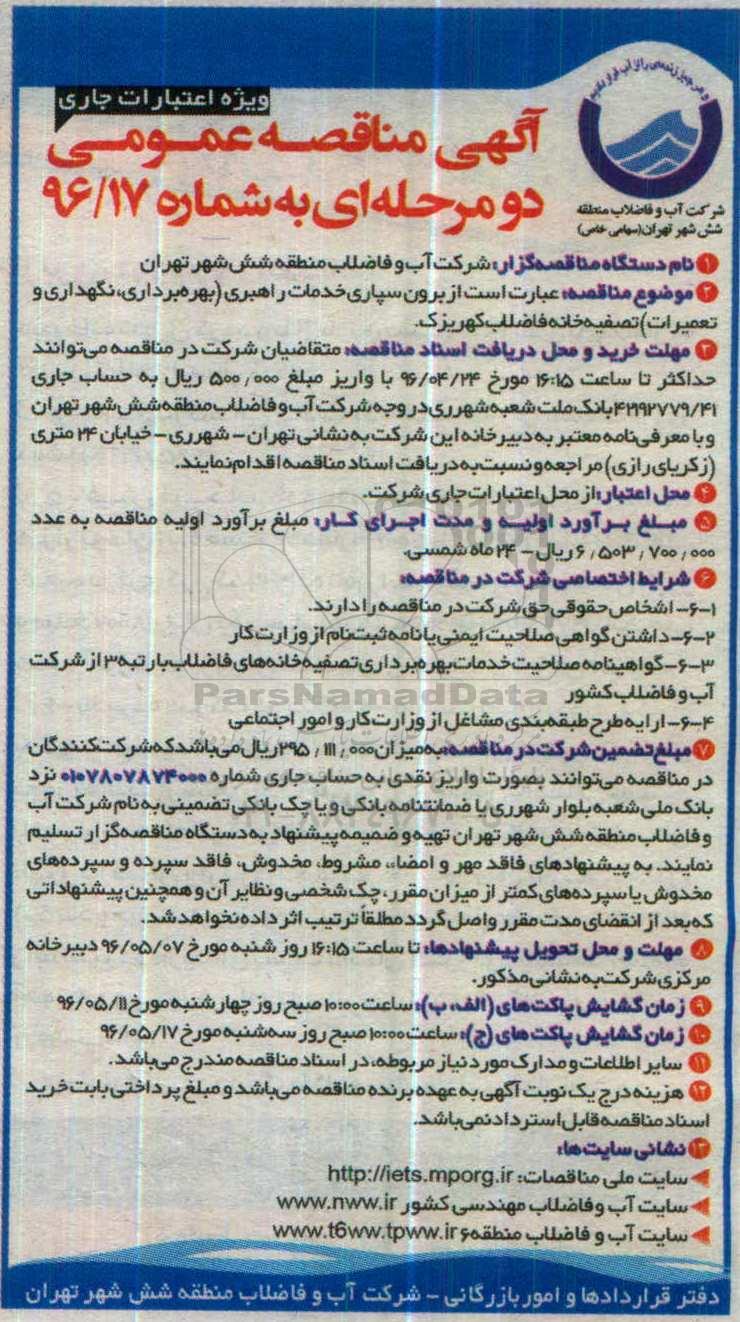 و هر چیز زنده‌ای را از آب قرار دادیم
شرکت آب و فاضلاب منطقه
شش شهر تهران (سهامی خاص)
ویژه اعتبارات جاری
آگهی مناقصه عمومی
دو مرحله‌ای به شماره ۹۶/۱۷
۱ نام دستگاه مناقصه‌گزار: شرکت آب و فاضلاب منطقه شش شهر تهران
۲ موضوع مناقصه: عبارت است از برون سپاری خدمات راهبری (بهره‌برداری، نگهداری و
تعمیرات) تصفیه‌خانه فاضلاب کهریزک.
۳ مهلت خرید و محل دریافت اسناد مناقصه: متقاضیان شرکت در مناقصه می‌توانند
حداکثر تا ساعت ۱۶:۱۵ مورخ ۹۶/۰۴/۲۴ با واریز مبلغ ۵۰۰٫۰۰۰ ریال به حساب جاری
۴۲۱۹۲۷۷۹/۴۱ بانک ملت شعبه شهرری در وجه شرکت آب و فاضلاب منطقه شش شهر تهران
و با معرفی‌نامه معتبر به دبیرخانه این شرکت به نشانی تهران - شهرری - خیابان ۲۴ متری
(زکریای رازی) مراجعه و نسبت به دریافت اسناد مناقصه اقدام نمایند.
۴ محل اعتبار: از محل اعتبارات جاری شرکت.
۵ مبلغ برآورد اولیه و مدت اجرای کار: مبلغ برآورد اولیه مناقصه به عدد
۶٫۵۰۳٫۷۰۰٫۰۰۰ ریال - ۲۴ ماه شمسی.
۶ شرایط اختصاصی شرکت در مناقصه:
۶-۱- اشخاص حقوقی حق شرکت در مناقصه را دارند.
۶-۲- داشتن گواهی صلاحیت ایمنی یا نامه ثبت نام از وزارت کار
۶-۳- گواهینامه صلاحیت خدمات بهره‌برداری تصفیه‌خانه‌های فاضلاب با رتبه ۳ از شرکت
آب و فاضلاب کشور
۶-۴- ارایه طرح طبقه‌بندی مشاغل از وزارت کار و امور اجتماعی
۷ مبلغ تضمین شرکت در مناقصه: به میزان ۲۹۵٫۱۱۱٫۰۰۰ ریال می‌باشد که شرکت‌کنندگان
در مناقصه می‌توانند بصورت واریز نقدی به حساب جاری شماره ۰۱۰۷۸۰۷۸۷۴۰۰۰ نزد
بانک ملی شعبه بلوار شهرری یا ضمانتنامه بانکی و یا چک بانکی تضمینی به نام شرکت آب
و فاضلاب منطقه شش شهر تهران تهیه و ضمیمه پیشنهاد به دستگاه مناقصه‌گزار تسلیم
نمایند. به پیشنهادهای فاقد مهر و امضاء، مشروط، مخدوش، فاقد سپرده و سپرده‌های
مخدوش یا سپرده‌های کمتر از میزان مقرر، چک شخصی و نظایر آن و همچنین پیشنهاداتی
که بعد از انقضای مدت مقرر واصل گردد مطلقا ترتیب اثر داده نخواهد شد.
۸ مهلت و محل تحویل پیشنهادها: تا ساعت ۱۶:۱۵ روز شنبه مورخ ۹۶/۰۵/۰۷ دبیرخانه
مرکزی شرکت به نشانی مذکور.
۹ زمان گشایش پاکت‌های (الف، ب): ساعت ۱۰:۰۰ صبح روز چهارشنبه مورخ ۹۶/۰۵/۱۱
۱۰ زمان گشایش پاکت‌های (ج): ساعت ۱۰:۰۰ صبح روز سه‌شنبه مورخ ۹۶/۰۵/۱۷
۱۱ سایر اطلاعات و مدارک مورد نیاز مربوطه، در اسناد مناقصه مندرج می‌باشد.
۱۲ هزینه درج یک نوبت آگهی به عهده برنده مناقصه می‌باشد و مبلغ پرداختی بابت خرید
اسناد مناقصه قابل استرداد نمی‌باشد.
۱۳ نشانی سایت‌ها:
سایت ملی مناقصات: http://iets.mporg.ir
سایت آب و فاضلاب مهندسی کشور www.nww.ir
سایت آب و فاضلاب منطقه ۶ www.t6ww.tpww.ir
دفتر قراردادها و امور بازرگانی - شرکت آب و فاضلاب منطقه شش شهر تهران
ParsNamadData